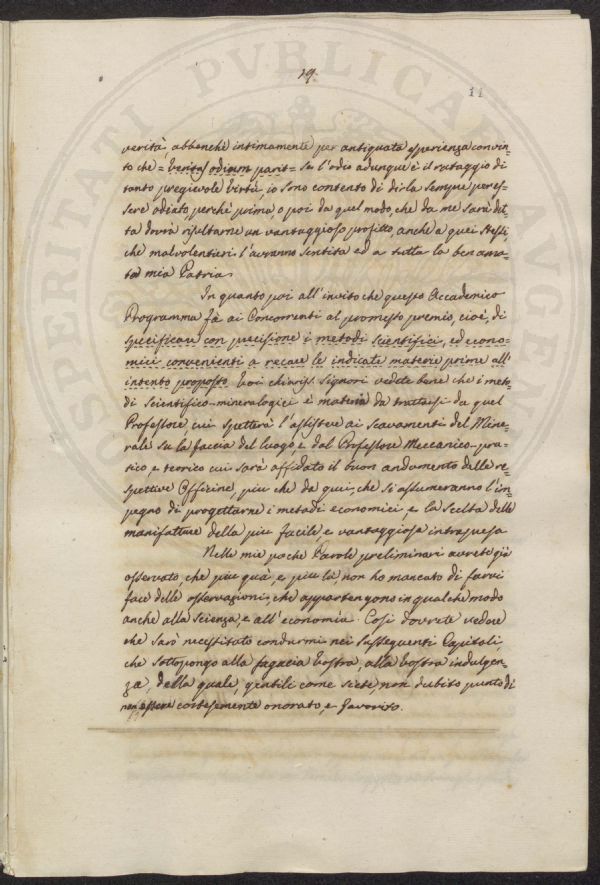 19.
11
verità, abbenchè intimamente per antiquata esperienza convin=
to che = Veritas odium parit = Se l'odio adunque è il retaggio di
tanto pregievole virtù, io sono contento di dirla sempre per es=
sere odiato, perchè prima, o poi da quel modo, che da me sarà det=
ta dovrà risultarne un vantaggioso profitto, anche a quei stessi,
che malvolentieri l'avranno sentita ed a tutta la ben ama=
ta mia Patria.
In quanto poi all'invito che questo Accademico
Programma fà ai Concorrenti al promesso premio, cioè, di
specificare con precisione i metodi scientifici, ed econo=
mici convenienti a recare le indicate materie prime all'
intento proposto. Voi chiariss. Signori vedete bene che i meto=
di Scientifico-mineralogici è materia da trattarsi da quel
Professore, cui spetterà l'assistere ai scavamenti del Mine=
rale su la faccia del luogo, e dal Professore Meccanico-pra=
tico, e teorico cui sarà affidato il buon andamento delle re=
spettive Officine, più che da qui, che si assumeranno l'im=
pegno di progettarne i metodi economici, e la scelta delle
manifatture della più facile, e vantaggiosa intrapresa
Nelle mie poche Parole preliminari avrete già
osservato, che più quà, e più là, non ho mancato di farvi
face delle osservazioni, che appartengono in qualche modo
anche alla Scienza, e all'economia. Così dovrete vedere
che sarò necessitato condurmi nei susseguenti Capitoli,
che sottopongo alla sagacia Vostra, alla Vostra indulgen=
za, della quale, gentili come siete, non dubito punto di
non essere cortesemente onorato, e favorito.
PROSPERITATI PUBLICAE AUGENDAE